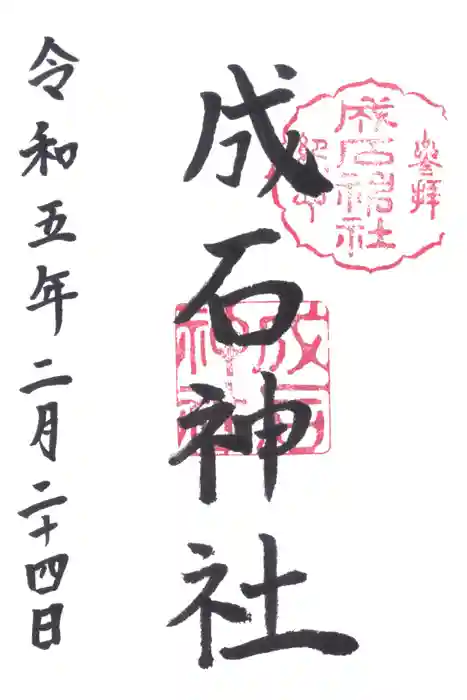 參拜
成石神社
成石神社
成石神社
令和五年二月二十四日